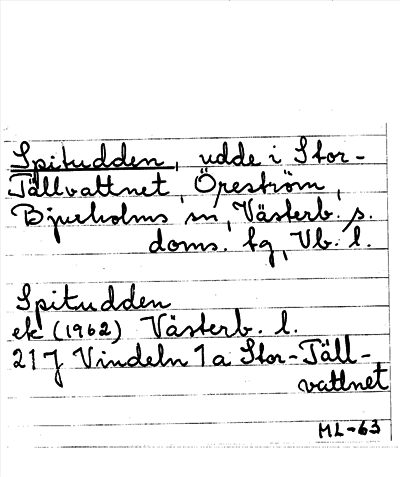 Spitudden, udde i Stor-
Tällvattnet, Öreström,
Bjurholms sn, Västerb. s.
doms. tg, Vb. l.
Spitudden
ek (1962) Västerb. l.
21 J Vindeln 1 a Stor-Täll-
vattnet
ML-63